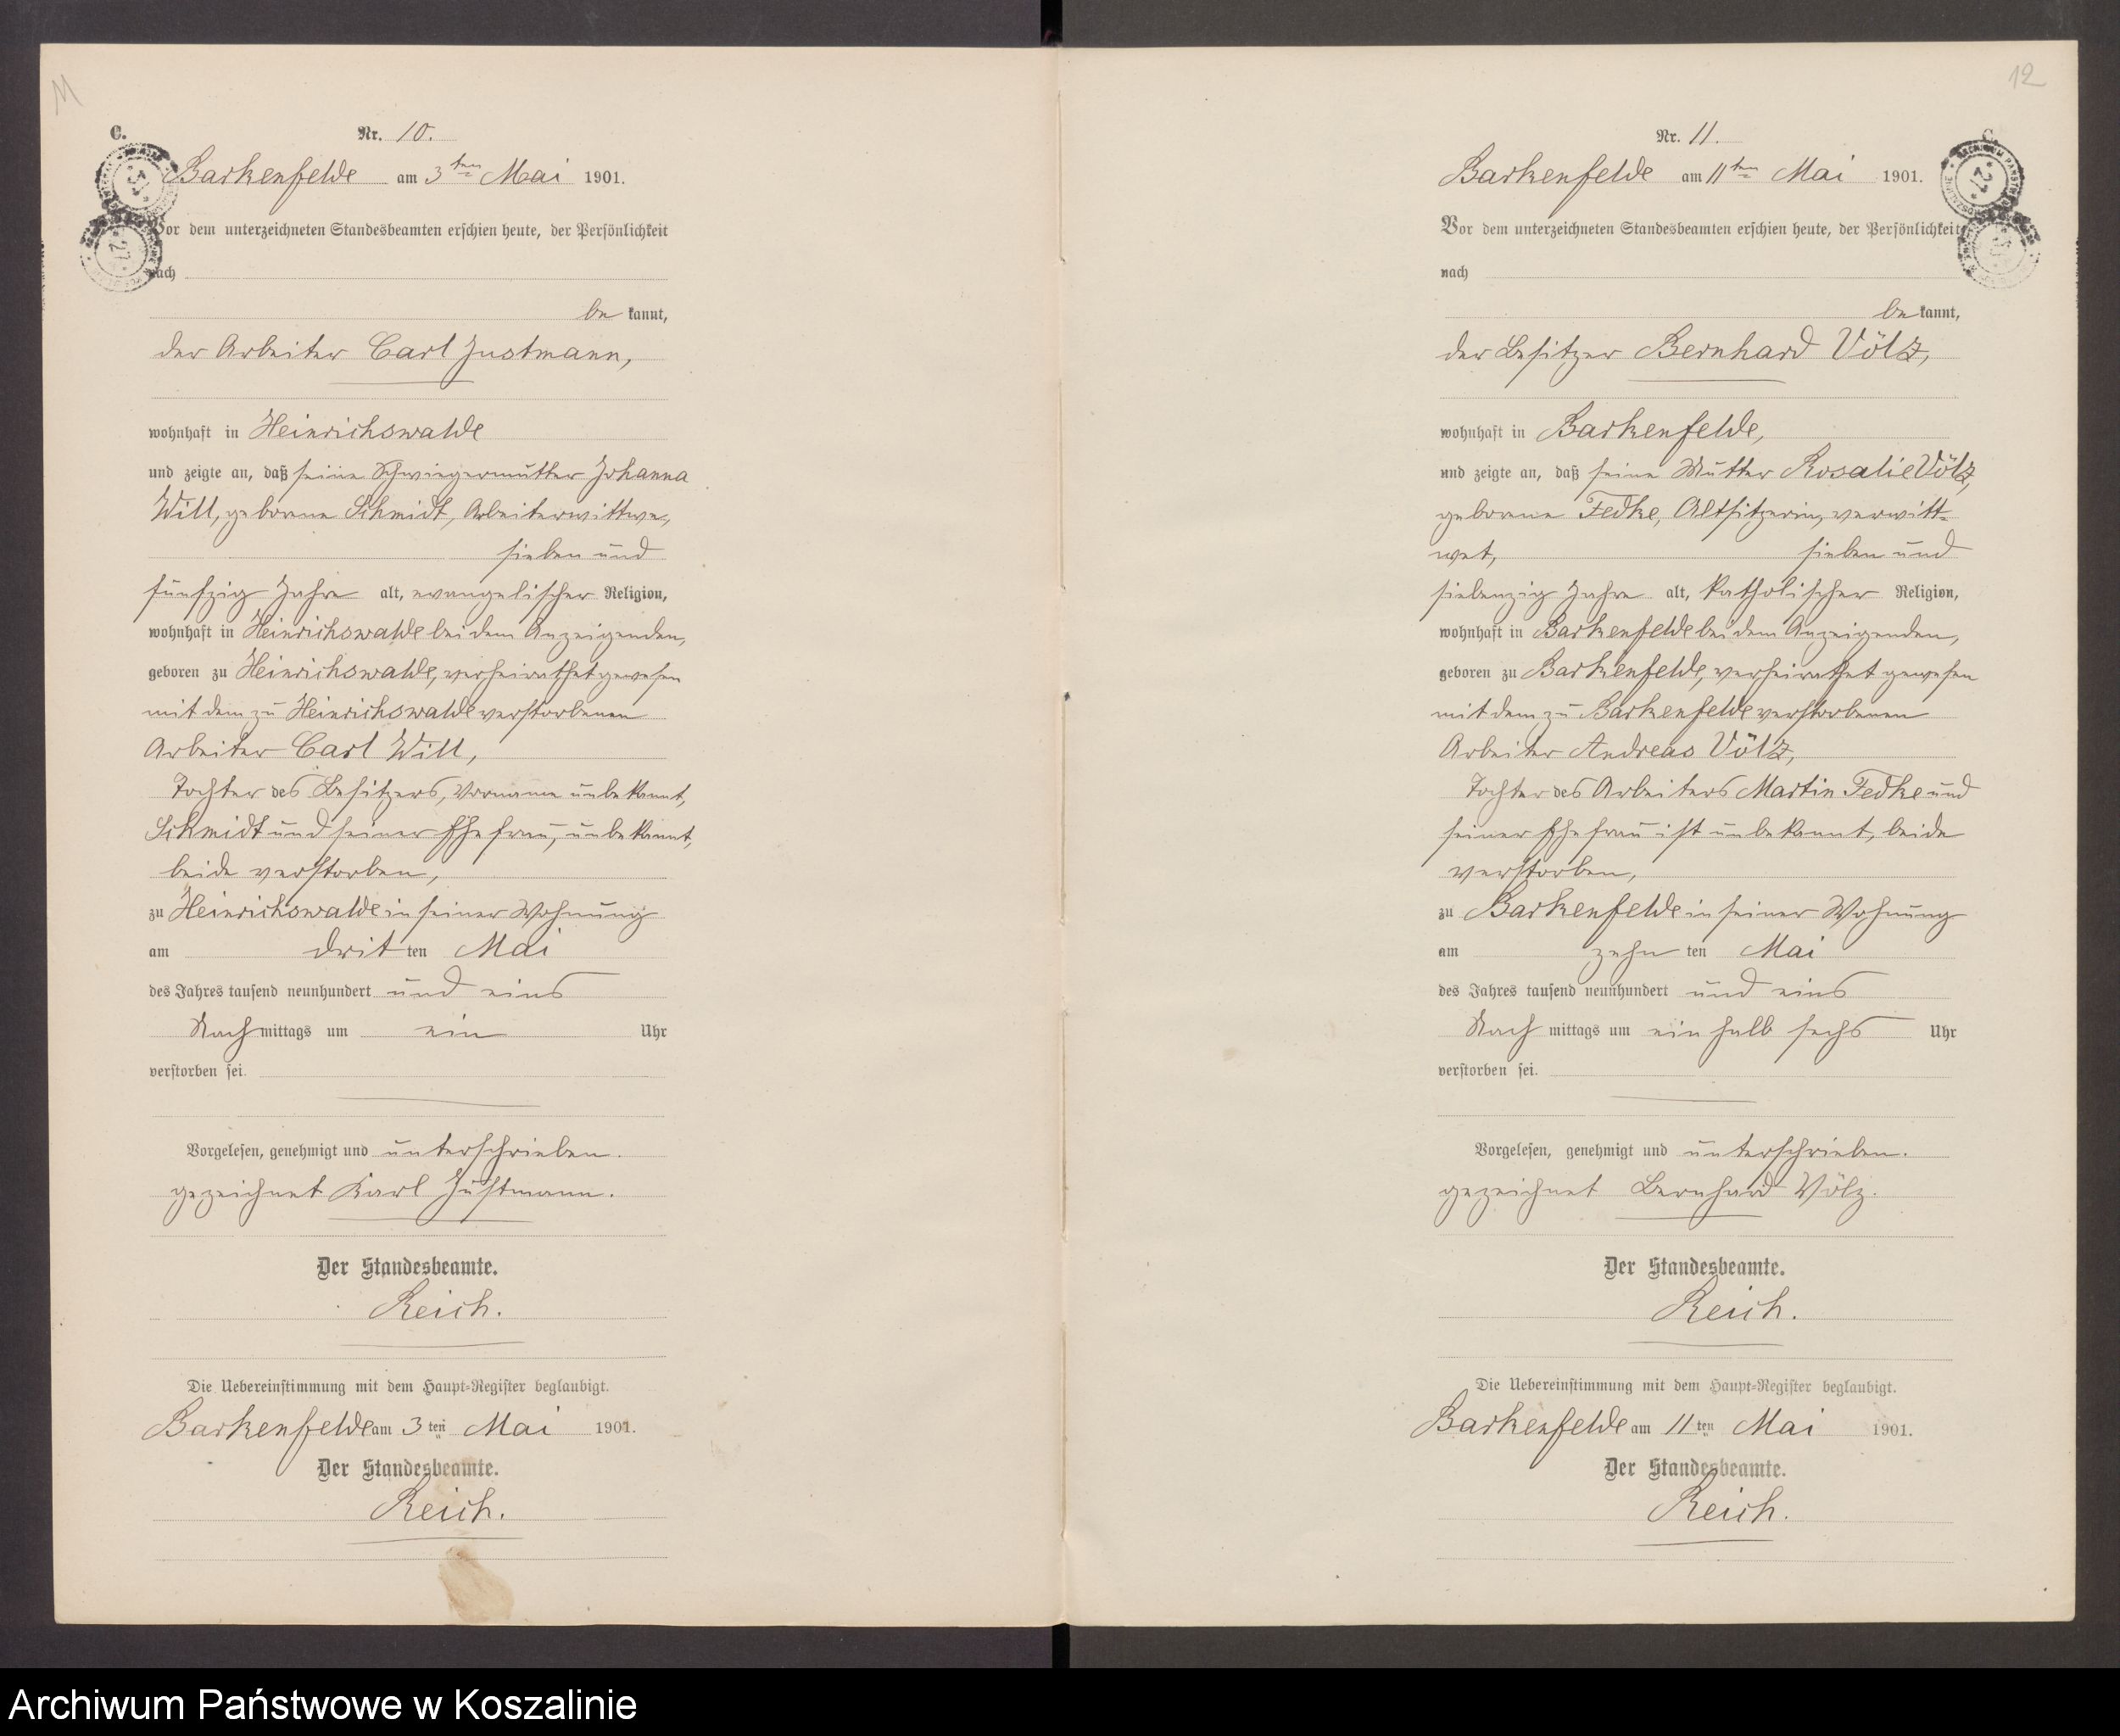 11
C.
Nr. 10.
Barkenfelde am 3ten Mai 1901.
Vor dem unterzeichneten Standesbeamten erschien heute, der Persönlichkeit
nach
be kannt,
der Arbeiter Carl Justmann,
wohnhaft in Heinrichswalde
und zeigte an, daß seine Schwiegermutter Johanna
Will, geborene Schmidt, Arbeiterwittwe,
sieben und
fünfzig Jahre alt, evangelischer Religion,
wohnhaft in Heinrichswalde bei dem Anzeigenden,
geboren zu Heinrichswalde, verheirathet gewesen
mit dem zu Heinrichswalde verstorbenen
Arbeiter Carl Will,
Tochter des Besitzers, Vorname unbekannt,
Schmidt und seiner Ehefrau, unbekannt,
beide verstorben,
zu Heinrichswalde in seiner Wohnung
am drit ten Mai
des Jahres tausend neunhundert und eins
Nach mittags um ein Uhr
verstorben sei.
Vorgelesen, genehmigt und unterschrieben.
gezeichnet Karl Justmann.
Der Standesbeamte.
Reich.
Die Uebereinstimmung mit dem Haupt-Register beglaubigt.
Barkenfelde am 3ten Mai 1901.
Der Standesbeamte.
Reich.
12
C.
Nr. 11.
Barkenfelde am 11ten Mai 1901.
Vor dem unterzeichneten Standesbeamten erschien heute, der Persönlichkeit
nach
be kannt,
der Besitzer Bernhard Völz,
wohnhaft in Barkenfelde,
und zeigte an, daß seine Mutter Rosalie Völz,
geborene Fedke, Altsitzerin, verwitt-
wet, sieben und
siebenzig Jahre alt, katholischer Religion,
wohnhaft in Barkenfelde bei dem Anzeigenden,
geboren zu Barkenfelde, verheirathet gewesen
mit dem zu Barkenfelde verstorbenen
Arbeiter Andreas Völz,
Tochter des Arbeiters Martin Fedke und
seiner Ehefrau ist unbekannt, beide
verstorben,
zu Barkenfelde in seiner Wohnung
am zehn ten Mai
des Jahres tausend neunhundert und eins
Nach mittags um ein halb sechs Uhr
verstorben sei.
Vorgelesen, genehmigt und unterschrieben.
gezeichnet Bernhard Völz.
Der Standesbeamte.
Reich.
Die Uebereinstimmung mit dem Haupt-Register beglaubigt.
Barkenfelde am 11ten Mai 1901.
Der Standesbeamte.
Reich.
Archiwum Państwowe w Koszalinie